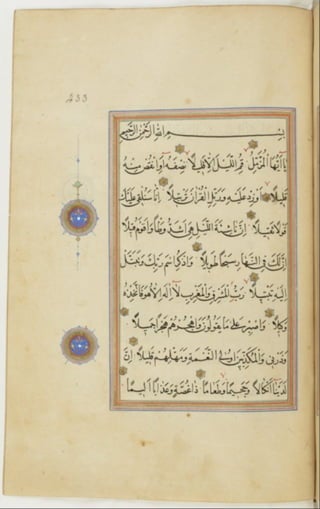 233
بسم الله الرحمن الرحيم
يا ايها المزمل قم الليل الا قليلا نصفه أو انقص منه
قليلا أو زد عليه ورتل القرآن ترتيلا إنا سنلقي عليك
قولا ثقيلا إن ناشئة الليل هي أشد وطأ وأقوم قيلا
إن لك في النهار سبحا طويلا واذكر اسم ربك وتبتل
إليه تبتيلا رب المشرق والمغرب لا إله إلا هو فاتخذه
وكيلا واصبر على ما يقولون واهجرهم هجرا جميلا
وذرني والمكذبين أولي النعمة ومهلهم قليلا إن
لدينا أنكالا وجحيما وطعاما ذا غصة وعذابا أليما